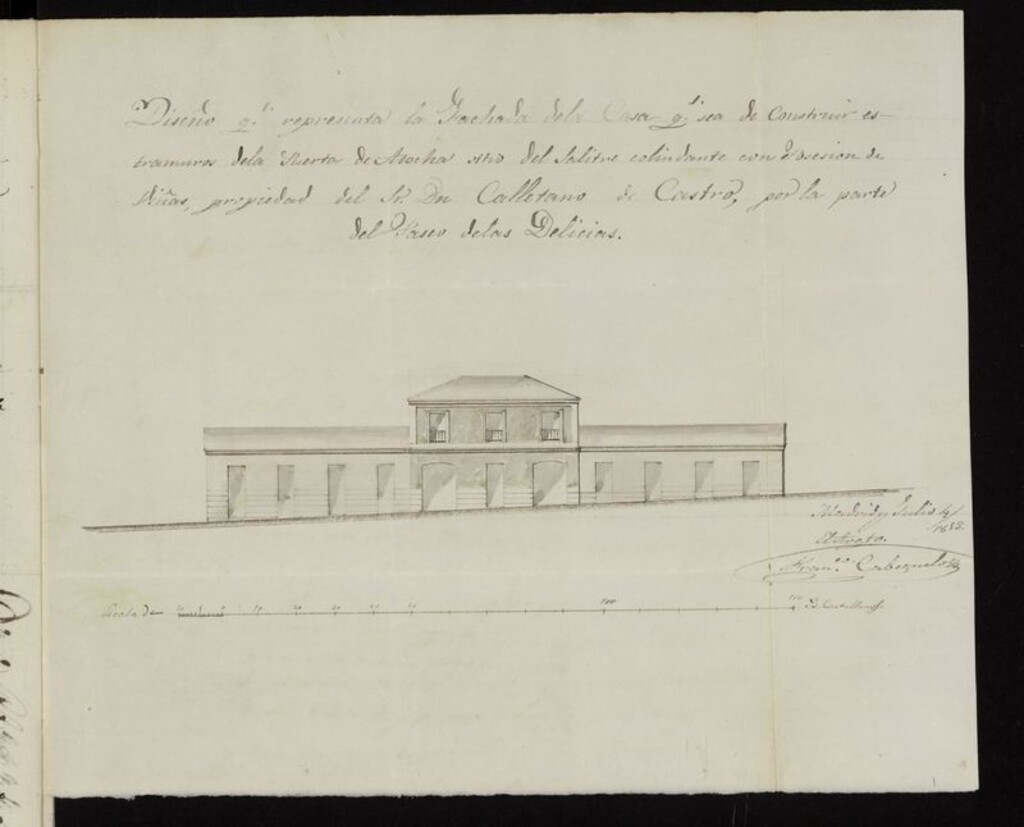 Diseño q.e representa la Fachada dela Casa q.e sea de Construir es-
tramuros dela Puerta de Atocha sitio del Salitre colindante con Posesion de
Viñas, propiedad del Sr. Dn Calletano de Castro, por la parte
del Paseo delas Delicias.
Madrid y Julio 4/
1853.
El Arqto.
Fran.co Cabezuelo
Escala de
10 20 30 40 50
100
150
Ps. Castellanos.